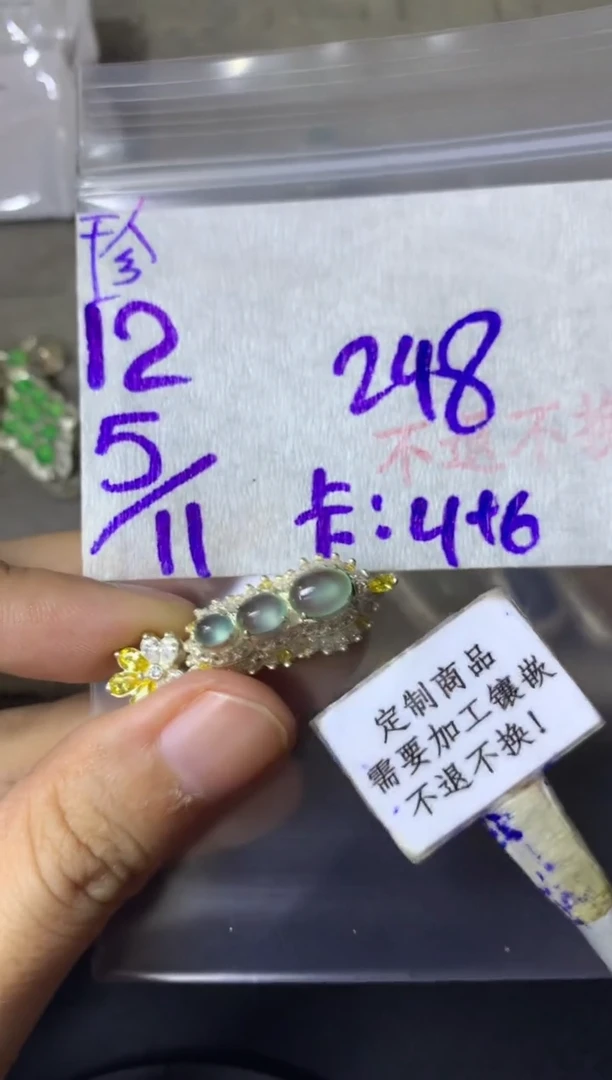 珍
12
5/11
248
不退不换
卡:4+6
定制商品
需要加工镶嵌
不退不换!